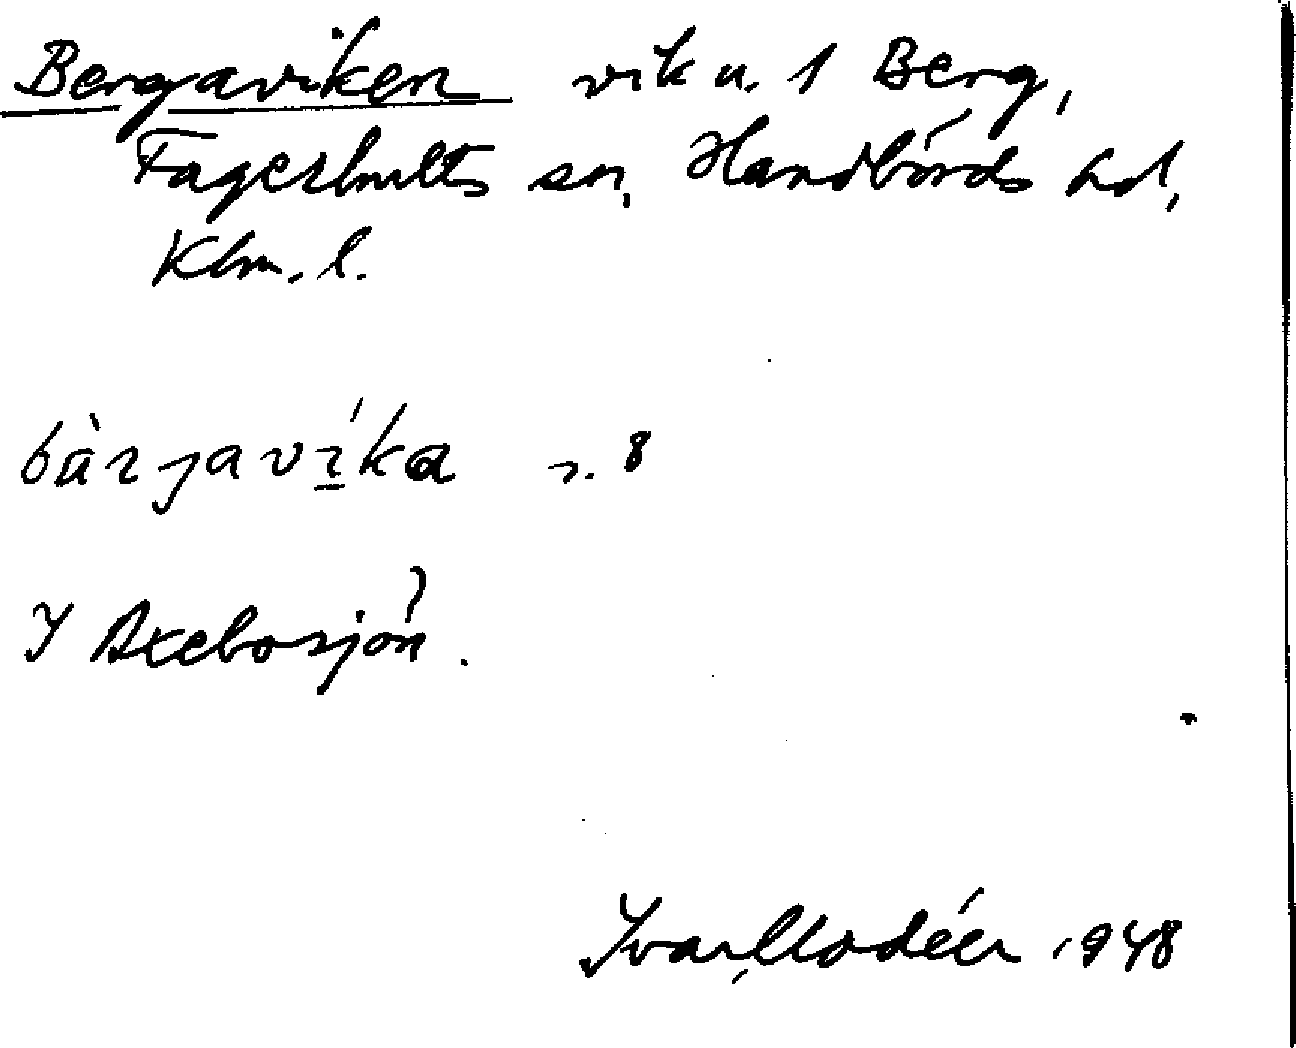 Bergaviken vik u. 1 Berg,
Fagerhults sn, Handbörds hd,
Klm. l.
bàrjavíka n. 8
I Axebosjön.
Ivar Modéer 1948